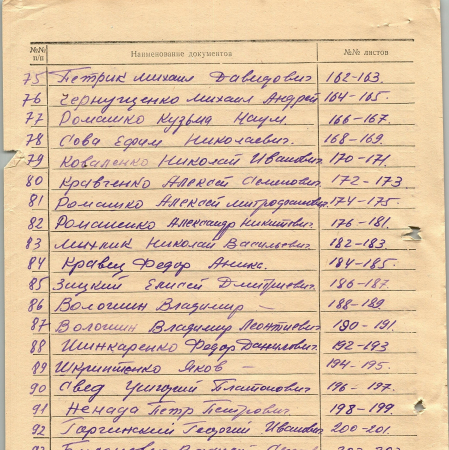 №№ п/п Наименование документов №№ листов
75 Петрик Михаил Давидович 162-163.
76 Чернущенко Михаил Андрей 164-165.
77 Ромашко Кузьма Наум. 166-167.
78 Сова Ефим Николаевич. 168-169.
79 Коваленко Николай Иванович 170-171.
80 Кравченко Алексей Семенович 172-173
81 Ромашко Алексей Митрофанович 174-175.
82 Романенко Александр Никитович 176-181.
83 Михник Николай Васильевич 182-183
84 Кравец Федор Аникс. 184-185.
85 Зицкий Елисей Дмитриевич. 186-187.
86 Волошин Владимир — 188-189
87 Волошин Владимир Леонтиевич 190-191.
88 Шинкаренко Федор Данилович. 192-193
89 Шкрипченко Яков — 194-195.
90 Свед Григорий Платонович. 196-197.
91 Ненада Петр Петрович. 198-199
92 Горгинский Георгий Иванович 200-201.